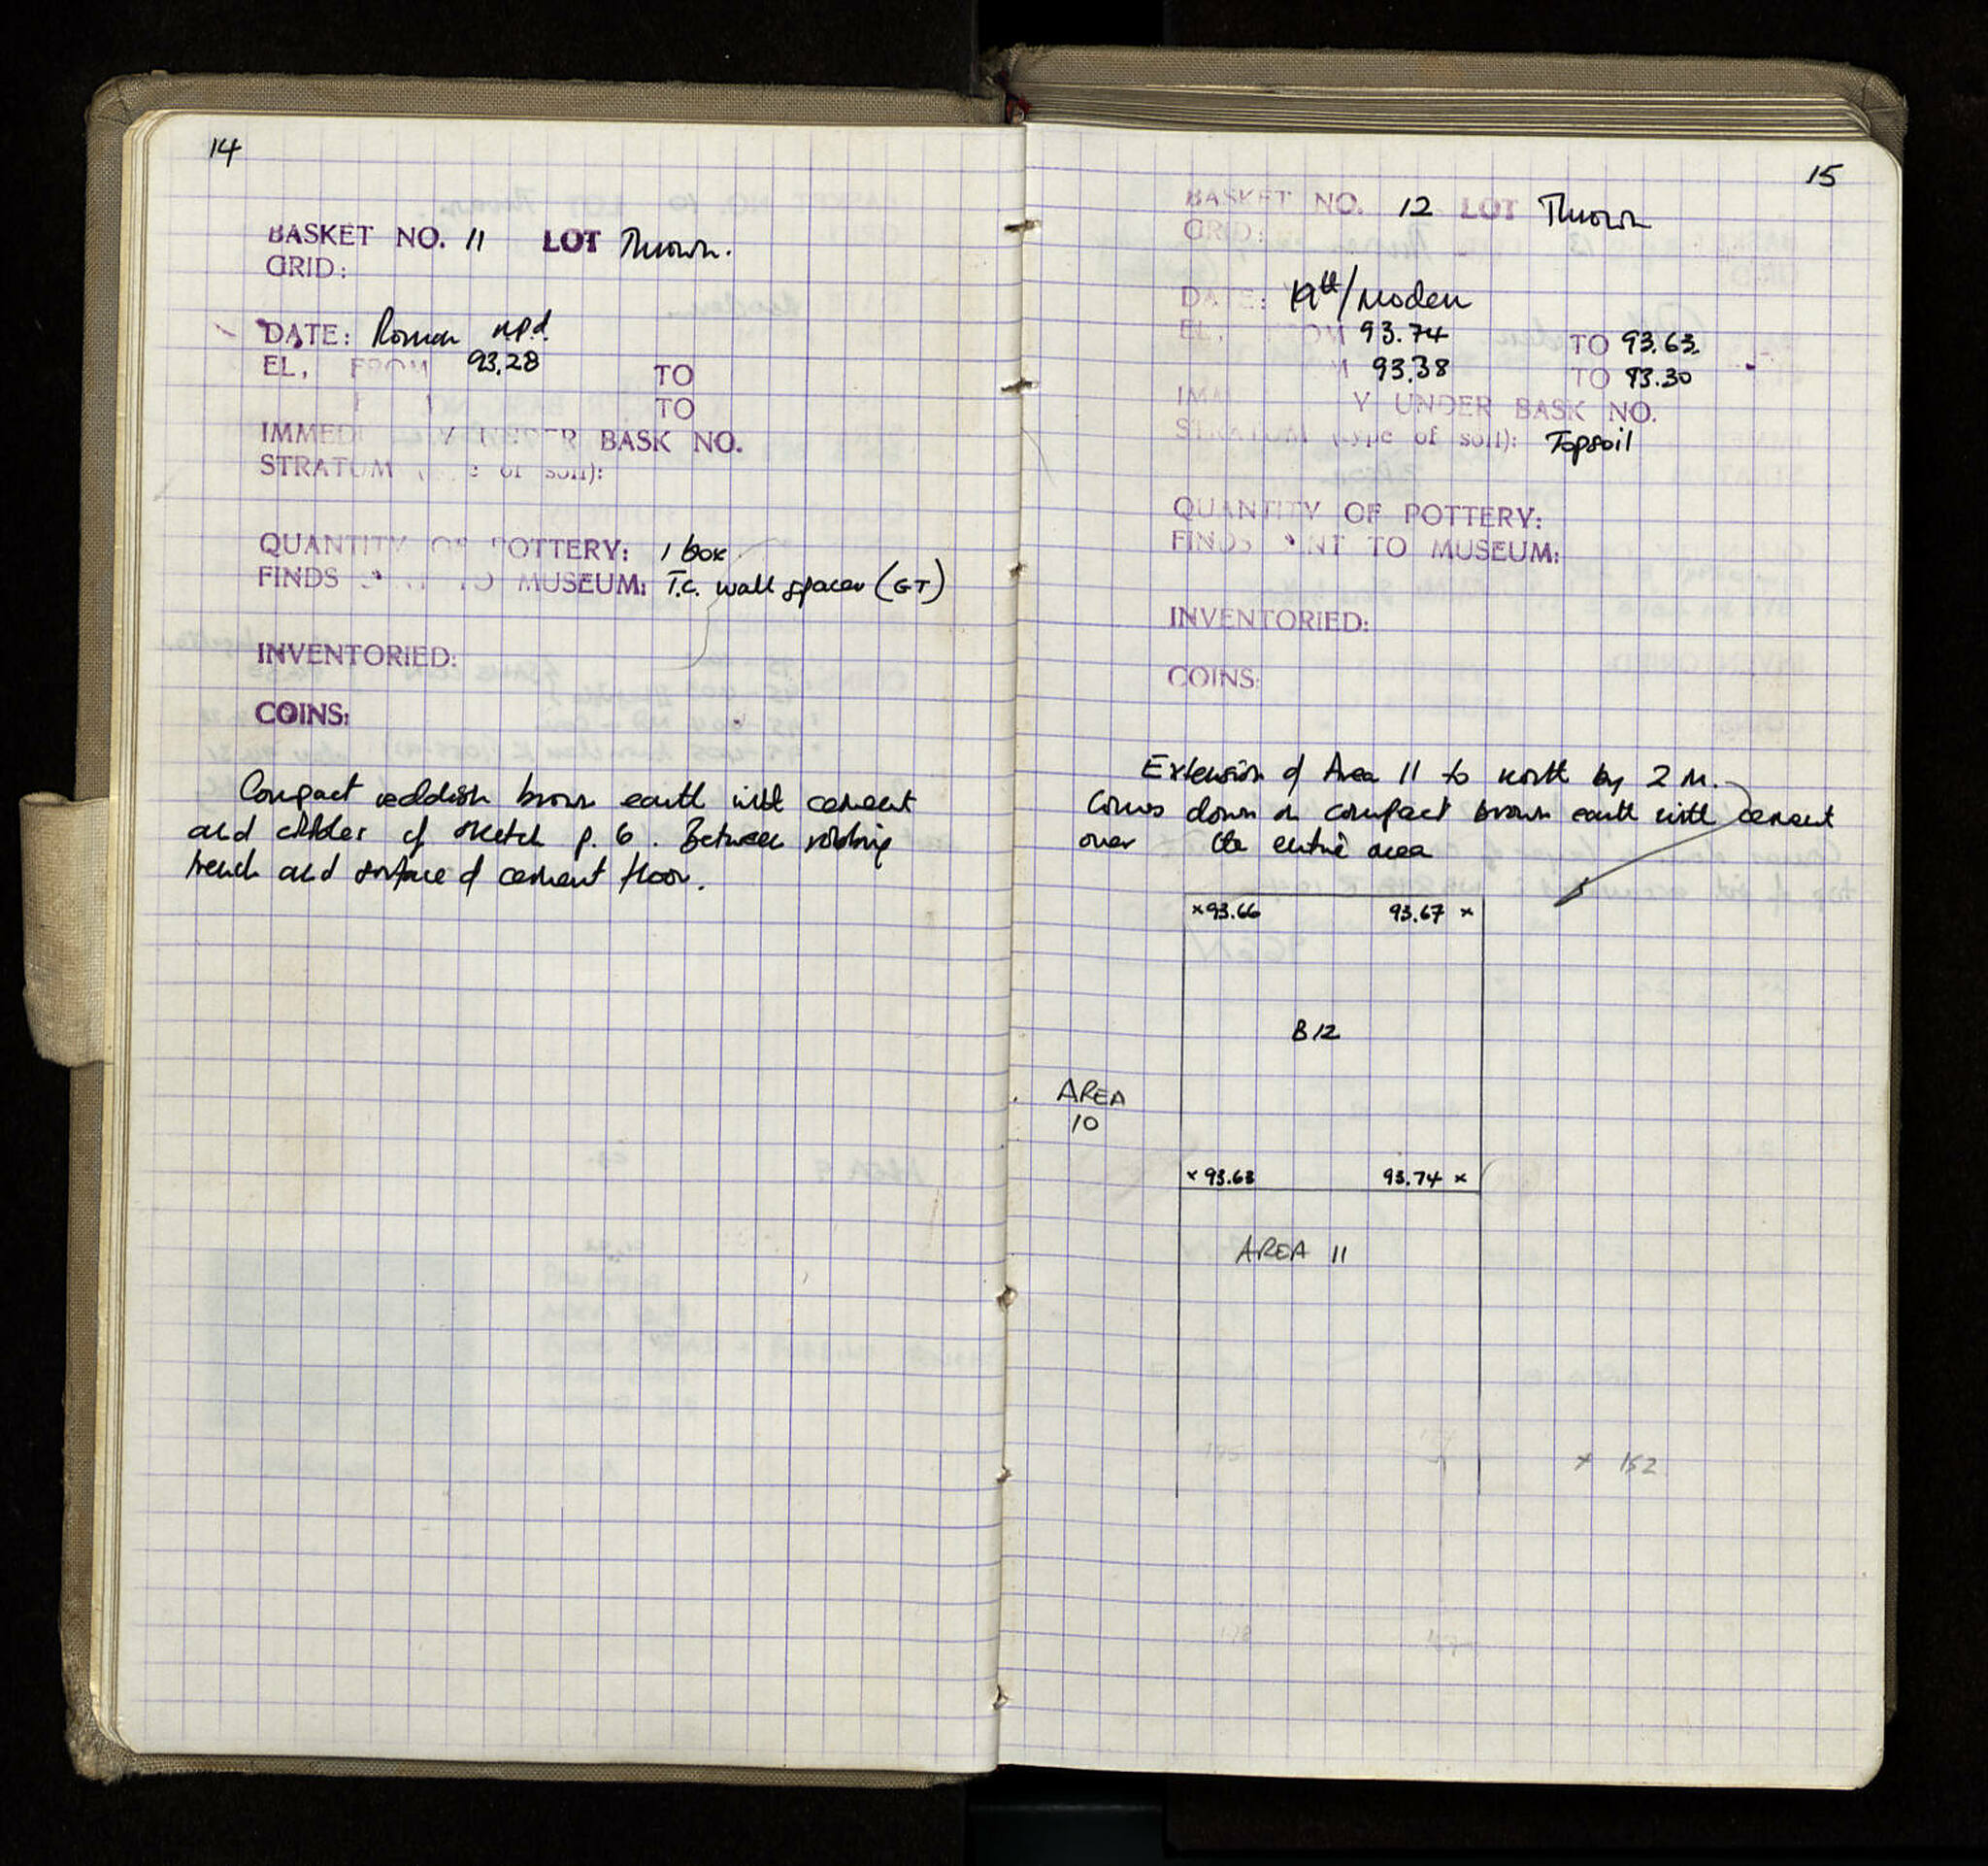 14
BASKET NO. 11 LOT Thrown.
GRID:
DATE: Roman npd.
EL, FROM 93.28 TO
TO
IMMEDI Y UNDER BASK NO.
STRATUM of soil):
QUANTITY OF POTTERY: 1 box
FINDS TO MUSEUM: T.C. wall spacer (GT)
INVENTORIED:
COINS:
Compact reddish brown earth with cement
and cobbles cf sketch p. 6. Between robbing
trench and surface of cement floor.
15
BASKET NO. 12 LOT Thrown
GRID:
DATE: 19th/Modern
EL, FROM 93.74 TO 93.63
M 93.38 TO 93.30
IMM Y UNDER BASK NO.
STRATUM (type of soil): Topsoil
QUANTITY OF POTTERY:
FINDS SENT TO MUSEUM:
INVENTORIED:
COINS:
Extension of Area 11 to north by 2 M.
Comes down on compact brown earth with cement
over the entire area
x 93.66 93.67 x
B12
AREA
10
x 93.63 93.74 x
AREA 11
x 152